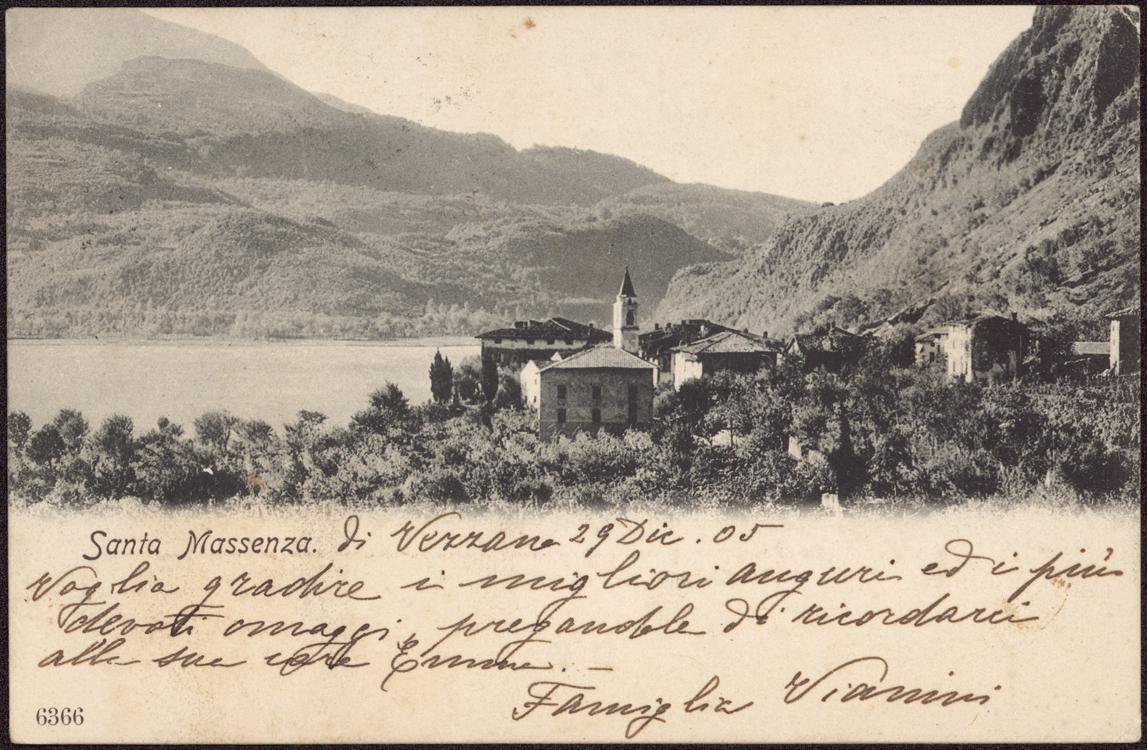 Santa Massenza. di Vezzano 29 Dic. 05
Voglia gradire i migliori auguri ed i più
devoti omaggi, pregandola di ricordarci
alle sue
Famiglia Vianini
6366